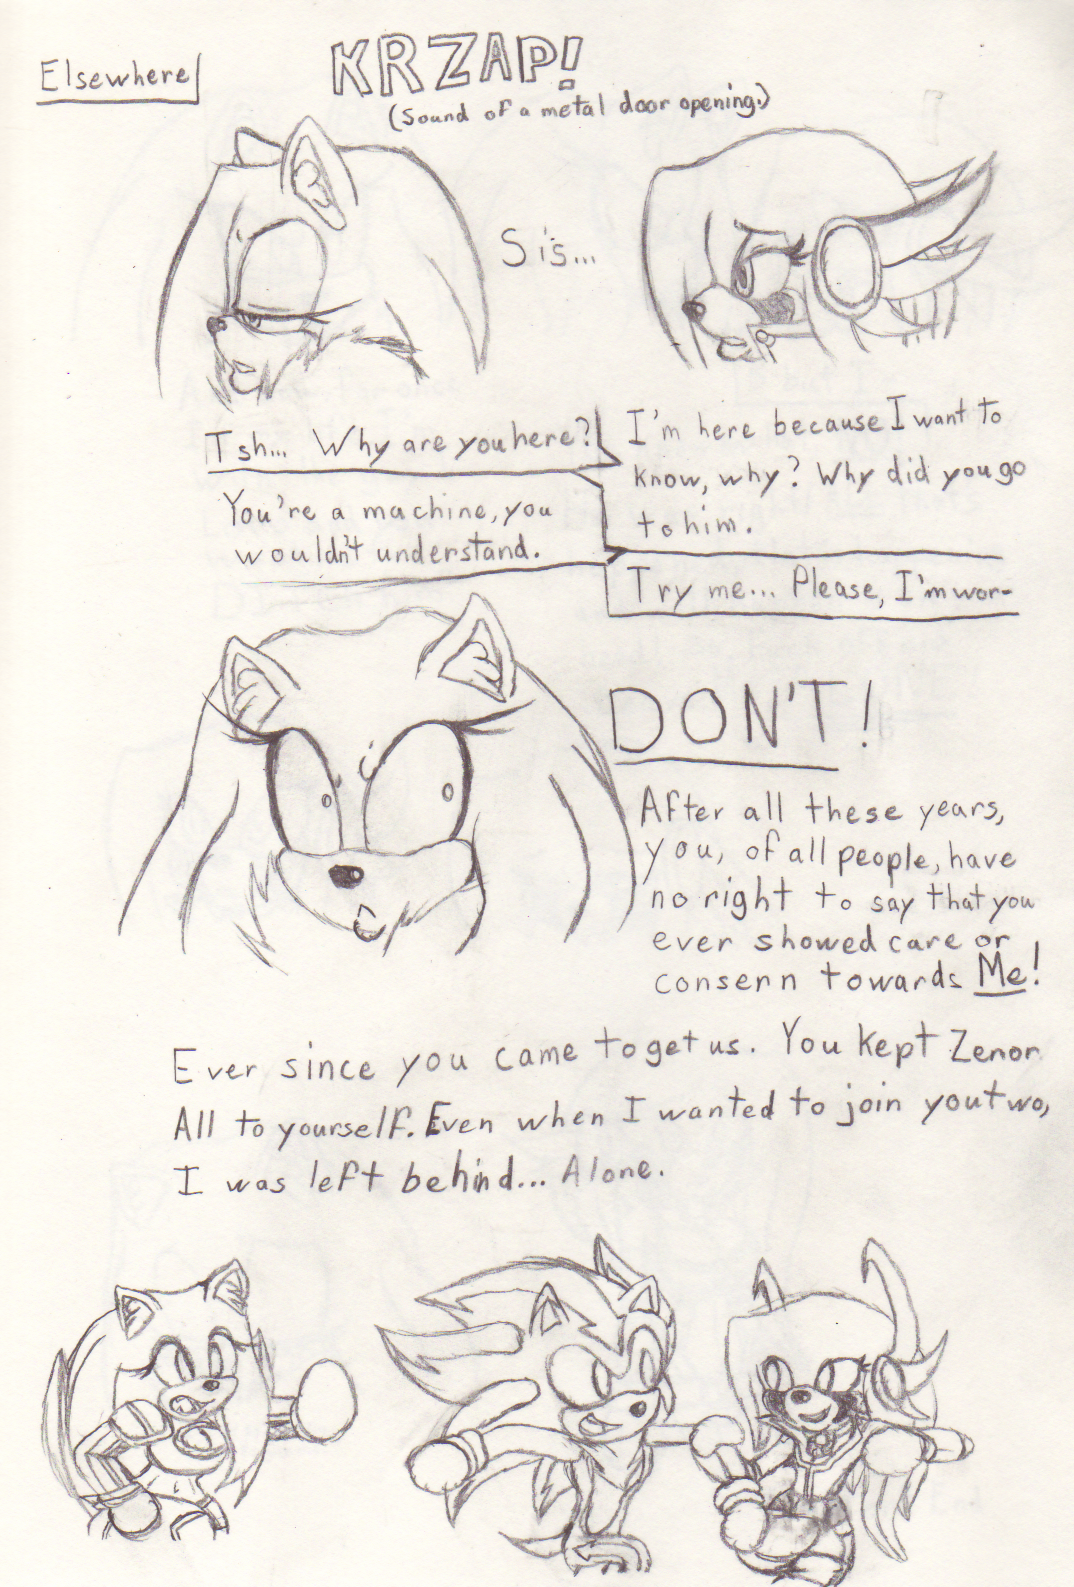 Elsewhere
KRZAP!
(Sound of a metal door opening.)
Sis...
Tsh... Why are you here?
I'm here because I want to
know, why? Why did you go
to him.
You're a machine, you
wouldn't understand.
Try me... Please, I'm wor-
DON'T!
After all these years,
you, of all people, have
no right to say that you
ever showed care or
consern towards Me!
Ever since you came to get us. You kept Zenor
All to yourself. Even when I wanted to join you two,
I was left behind... Alone.